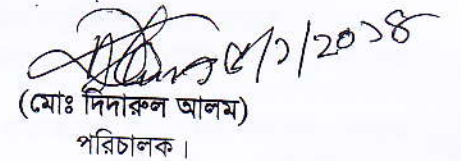 ৫/১/২০১৪
(মোঃ দিদারুল আলম)
পরিচালক।